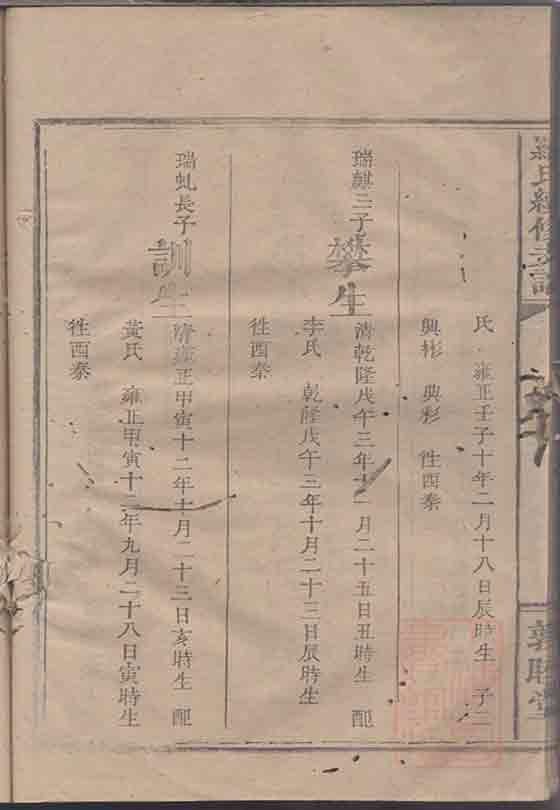 氏修
氏 雍正壬子十年二月十八日辰時生 子二
興彬 興彩 徃西秦
瑞麒二子
攀生
清乾隆戊午三年十二月二十五日丑時生 配
李氏 乾隆戊午三年十月二十三日辰時生
徃西秦
瑞虬長子
訓生
清雍正甲寅十二年十月二十三日亥時生 配
黃氏 雍正甲寅十二年九月二十八日寅時生
徃西秦